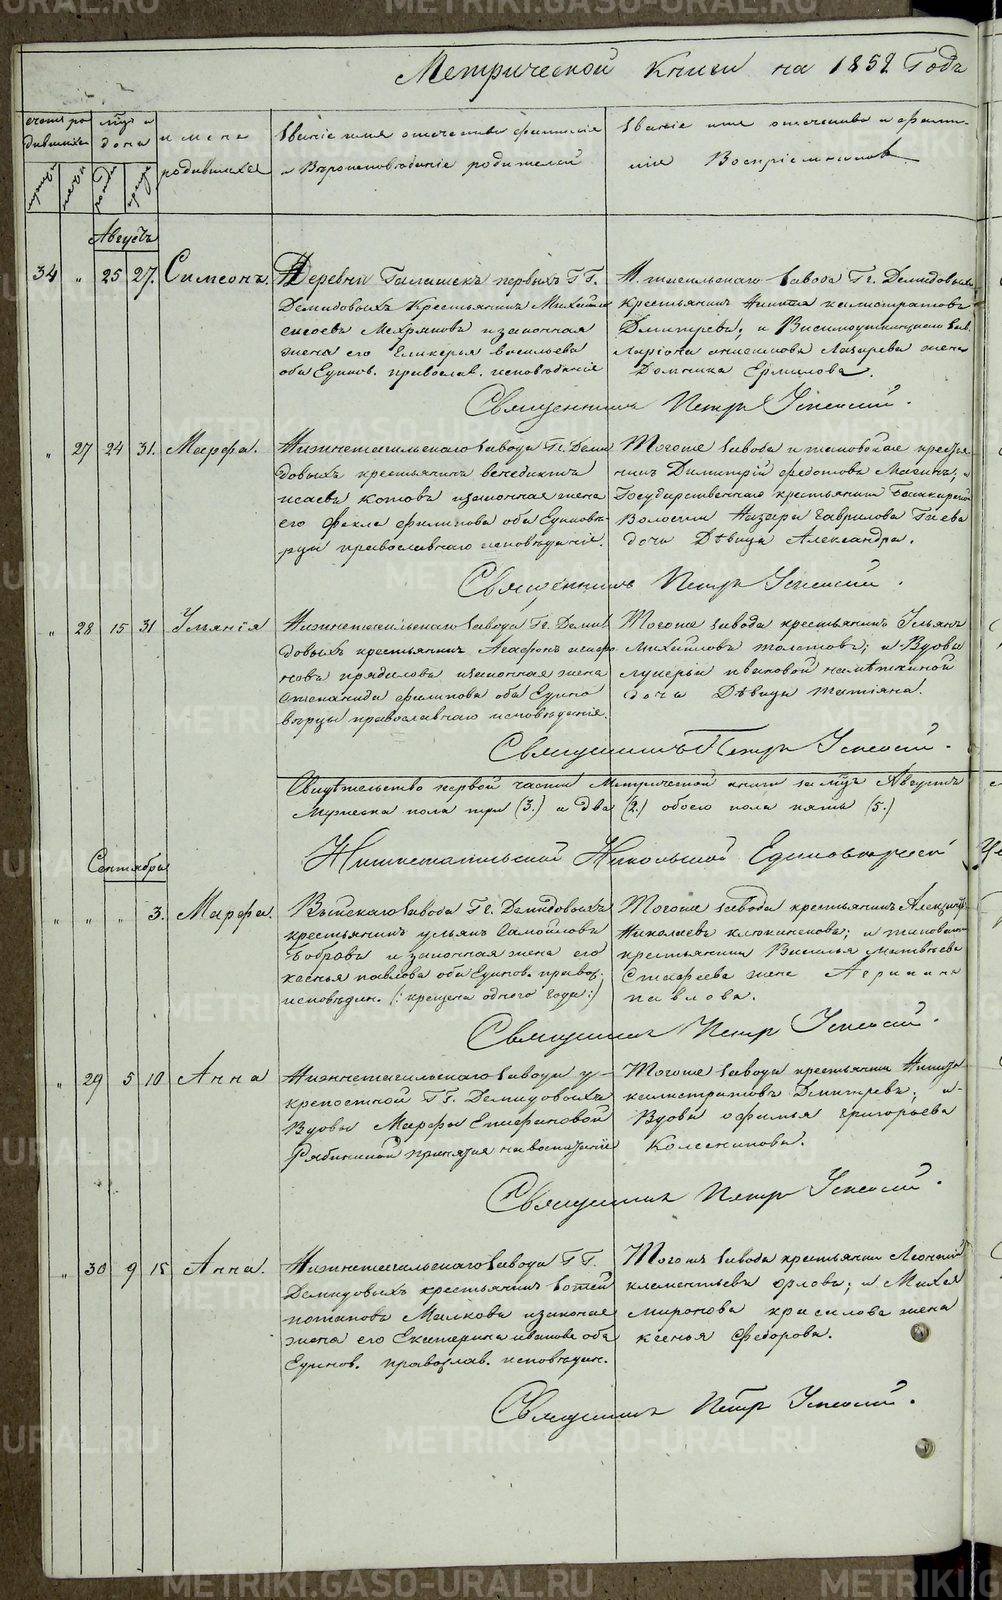 Метрической Книги на 1852 Годъ
счетъ ро
дившихся
мцъ и
дона
имена
родившихся
Званіе имя отечество фамилія
и Вѣроисповѣданіе родителей
Званіе имя отечество и фами-
лія Воспріемниковъ
Августъ
34 " 25 27. Симеонъ.
Деревни Галашекъ первыхъ ГГ.
Демидовыхъ Крестьянинъ Михайла
Мехряковъ и законная
жена его Гликерья васильева
оба Единов. православ. исповѣданіе
Н. тагильскаго завода Гг. Демидовыхъ
крестьянинъ Никита калистратовъ
Дмитревъ, и Висимоуткинскаго зав.
Ларіона анисимова Лазарева жена
Домника Ермилова.
Священникъ Петръ Успенскій.
" 27 24 31. Марфа.
Нижнетагильскаго завода Гг. Деми
довыхъ крестьянинъ венедиктъ
исаевъ котовъ и законная жена
его Фекла филипова оба Единовѣ-
рцы православнаго исповѣданіе.
Тогоже завода и таковскаго крестья
нинъ Димитрій федотовъ Масинъ, и
Государственнаго крестьянина Башкарской
Волости Назара гаврилова Гаева
дочь Дѣвица Александра.
Священникъ Петръ Успенскій.
" 28 15 31 Ульянія
Нижнетагильскаго завода Гг. Деми
довыхъ крестьянинъ Агафонъ
новъ прядилова и законная жена
Степанида филипова оба Едино
вѣрцы православнаго исповѣданіе.
Тогоже завода крестьянинъ Ульянъ
Михайловъ толстовъ; и Вдовы
лукерьи ивановой
дочь Дѣвица татіяна.
Священникъ Петръ Успенскій.
Свидѣтельство первой части Метрической книги за мцъ Августъ
Мужеска пола три (3.) и два (2.) обоего пола пять (5.)
Нижнетагильской Никольской Единовѣрческой
Сентябрь
" " " 3. Марфа.
Выйскаго завода Гг. Демидовыхъ
крестьянинъ ульянъ Самойловъ
Бобровъ и законная жена его
ксенья павлова оба Единов. правос.
исповѣдан. (: крещена одного года :)
Тогоже завода крестьянинъ Александръ
Николаевъ клюкинсковъ; и таковаго
крестьянина Василья Матвѣева
Стафеева жена Агрипина
павлова.
Священникъ Петръ Успенскій.
" 29 5 10 Анна
Нижнетагильскаго завода у
крепостной ГГ. Демидовыхъ
Вдовы Марфы Епифановой
Рябининой принятая на воспитаніе
Тогоже завода крестьянинъ Никита
калистратовъ Дмитревъ; и
Вдова офимья григорьева
Колесникова.
Священникъ Петръ Успенскій.
" 30 9 15 Анна.
Нижнетагильскаго завода ГГ.
Демидовыхъ крестьянинъ Фотей
потаповъ Малковъ и законная
жена его Екатерина иванова оба
Единов. православ. исповѣдан.
Тогожъ завода крестьянинъ Леонтій
клементьевъ орловъ; и Михея
миронова красилова жена
ксенья Федорова.
Священникъ Петръ Успенскій.
METRIKI.GASO-URAL.RU